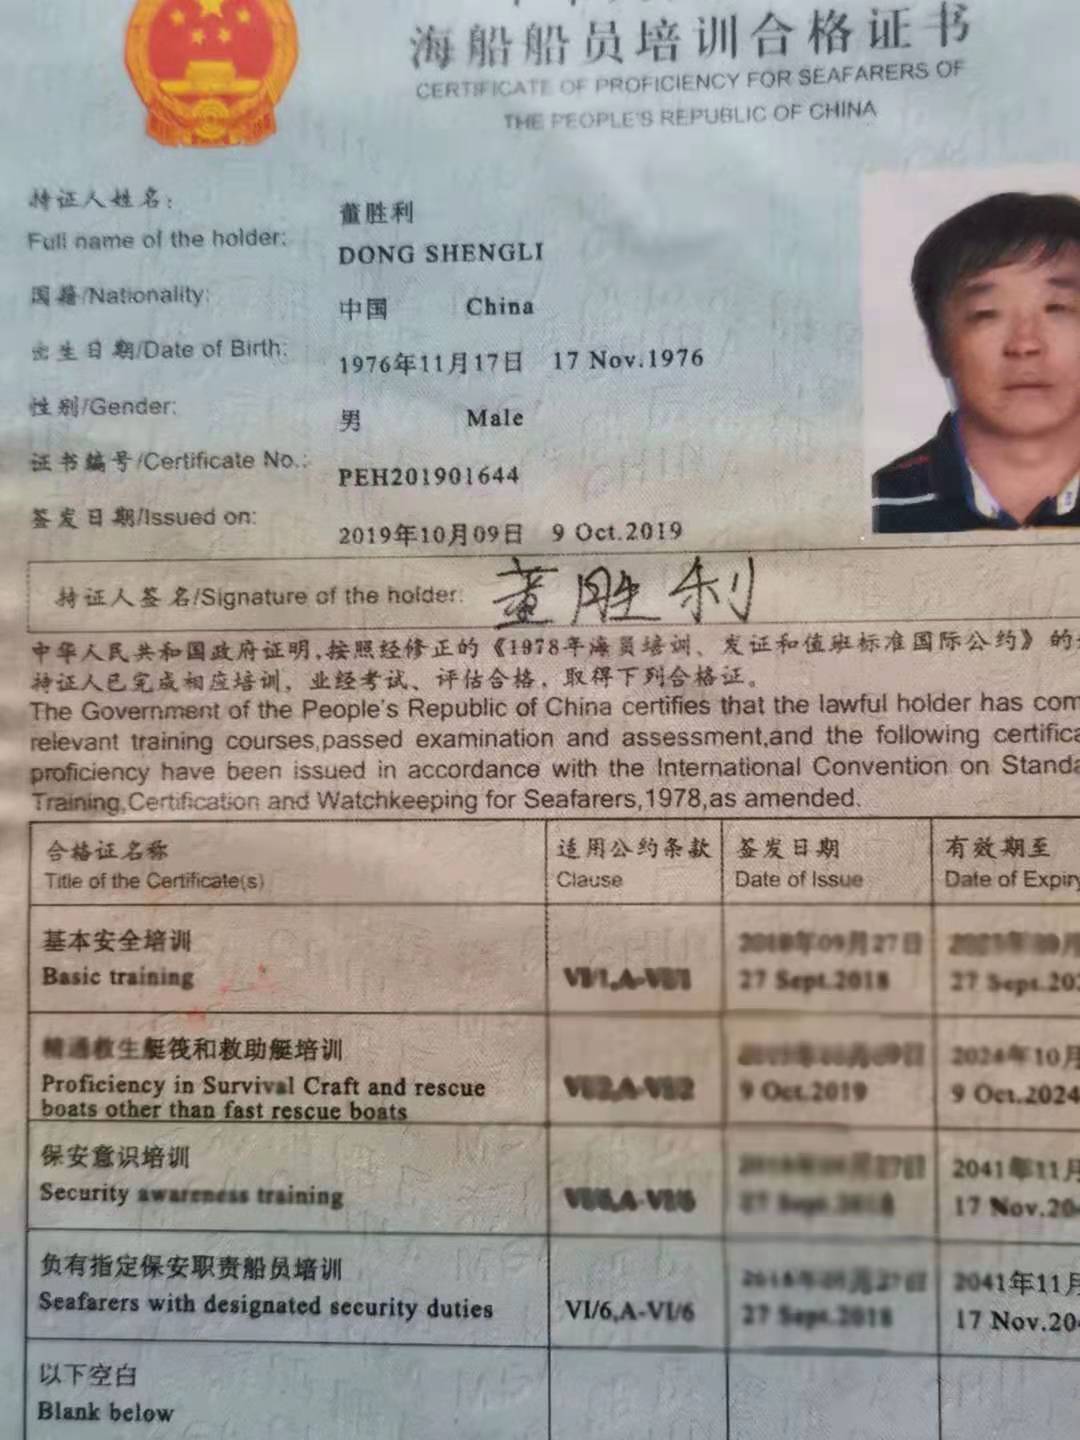 海船船员培训合格证书
CERTIFICATE OF PROFICIENCY FOR SEAFARERS OF
THE PEOPLE'S REPUBLIC OF CHINA
持证人姓名: 董胜利
Full name of the holder: DONG SHENGLI
国籍/Nationality: 中国 China
出生日期/Date of Birth: 1976年11月17日 17 Nov.1976
性别/Gender: 男 Male
证书编号/Certificate No.: PEH201901644
签发日期/Issued on: 2019年10月09日 9 Oct.2019
持证人签名/Signature of the holder: 董胜利
中华人民共和国政府证明,按照经修正的《1978年海员培训、发证和值班标准国际公约》的
持证人已完成相应培训，业经考试、评估合格，取得下列合格证。
The Government of the People's Republic of China certifies that the lawful holder has com
relevant training courses,passed examination and assessment,and the following certifica
proficiency have been issued in accordance with the International Convention on Standa
Training,Certification and Watchkeeping for Seafarers,1978,as amended.
合格证名称 适用公约条款 签发日期 有效期至
Title of the Certificate(s) Clause Date of Issue Date of Expiry
基本安全培训 09月27日
Basic training 27 Sept.2018 27 Sept.20
艇筏和救助艇培训 2024年10月
Proficiency in Survival Craft and rescue 9 Oct.2019 9 Oct.2024
boats other than fast rescue boats
保安意识培训 2041年11月
Security awareness training 17 Nov.20
负有指定保安职责船员培训 2041年11月
Seafarers with designated security duties VI/6,A-VI/6 27 Sept.2018 17 Nov.20
以下空白
Blank below